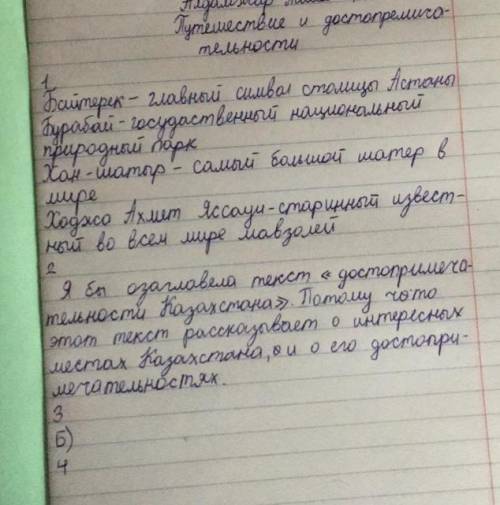 Путешествие и достопремича-
тельности
1
Байтерек - главный символ столицы Астаны
Бурабай - госудаственный национальный
природный парк
Хан-шатыр - самый большой шатер в
мире
Ходжа Ахмет Яссауи - старинный извест-
ный во всем мире мавзолей
2
Я бы озаглавела текст «достопримеча-
тельности Казахстана». Потому что
этот текст рассказывает о интересных
местах Казахстана, и о его достопри-
мечательностях.
3
Б)
4